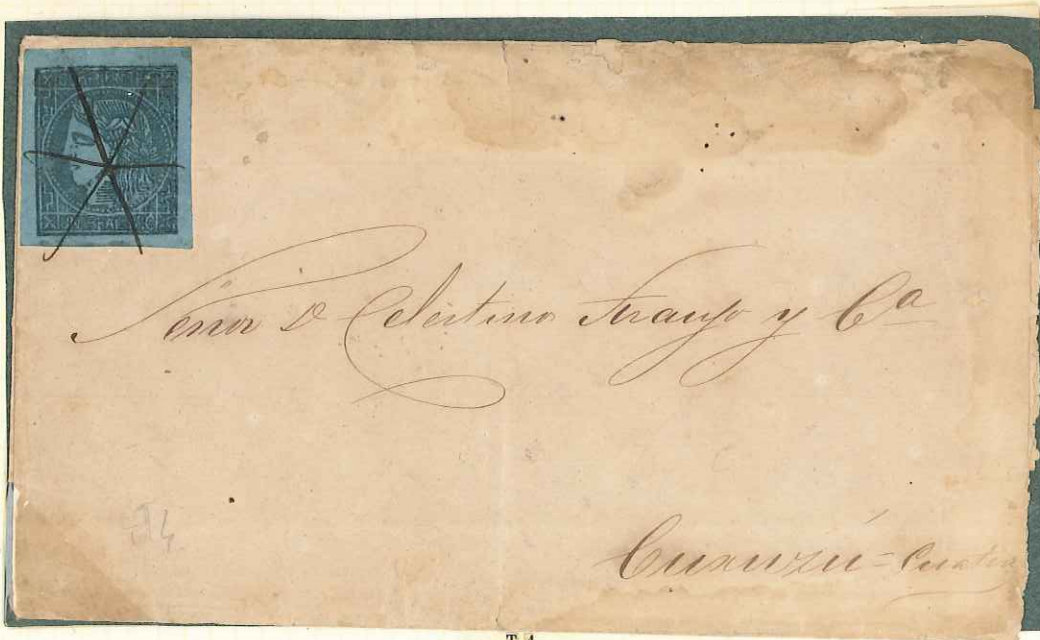 Señor D Celestino Araujo y Cª
Curuzú = Cuatia
T 4
T 4